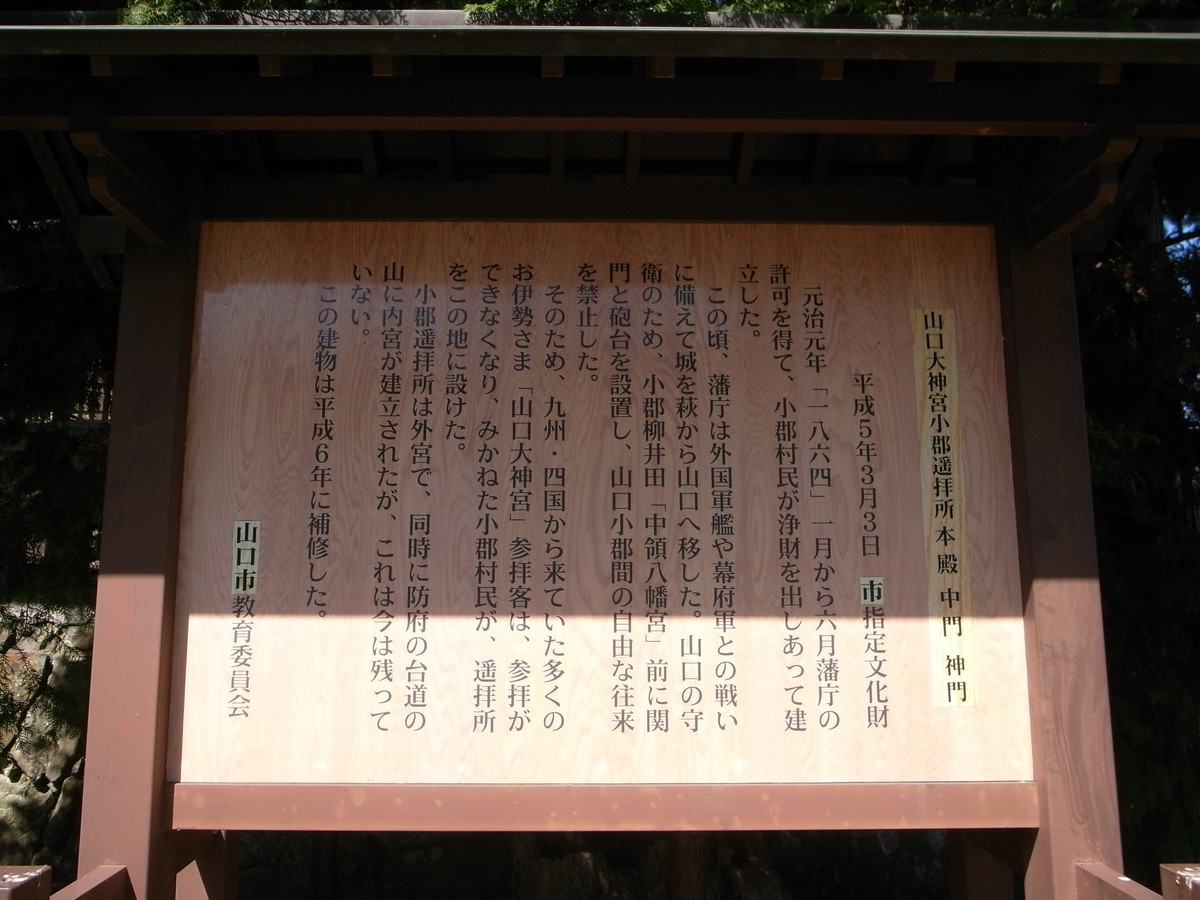 山口大神宮小郡遥拝所 本殿 中門 神門
平成5年3月3日 市指定文化財
元治元年「一八六四」一月から六月藩庁の
許可を得て、小郡村民が浄財を出しあって建
立した。
この頃、藩庁は外国軍艦や幕府軍との戦い
に備えて城を萩から山口へ移した。山口の守
衛のため、小郡柳井田「中領八幡宮」前に関
門と砲台を設置し、山口小郡間の自由な往来
を禁止した。
そのため、九州・四国から来ていた多くの
お伊勢さま「山口大神宮」参拝客は、参拝が
できなくなり、みかねた小郡村民が、遥拝所
をこの地に設けた。
小郡遥拝所は外宮で、同時に防府の台道の
山に内宮が建立されたが、これは今は残って
いない。
この建物は平成6年に補修した。
山口市教育委員会